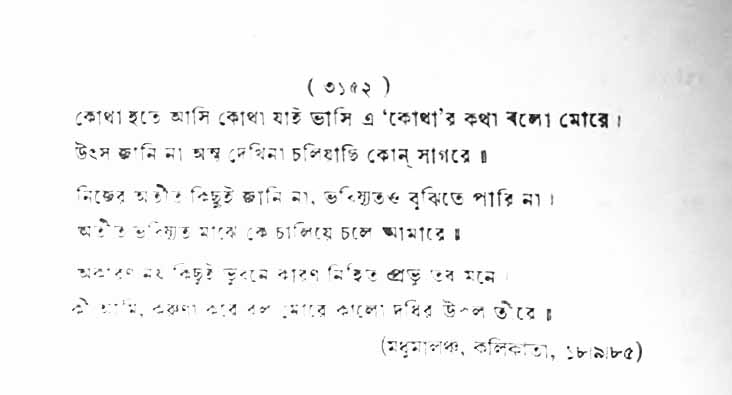 ( ৩১৫২ )
কোথা হতে আসি কোথা যাই ভাসি এ ‘কোথা’র কথা বলো মোরে ।
উৎস জানি না অন্ত দেখিনা চলিয়াছি কোন্ সাগরে ॥
নিজের অতীত কিছুই জানি না, ভবিষ্যতও বুঝিতে পারি না ।
অতীত ভবিষ্যত মাঝে কে চালিয়ে চলে আমারে ॥
অকারণ নয় কিছুই ভুবনে কারণ নিহিত প্রভু তব মনে ।
কী আমি, করুণা করে বল মোরে কালো দধির উপল তীরে ॥
(মধুমালঞ্চ, কলিকাতা, ১৮।৯।৮৫)